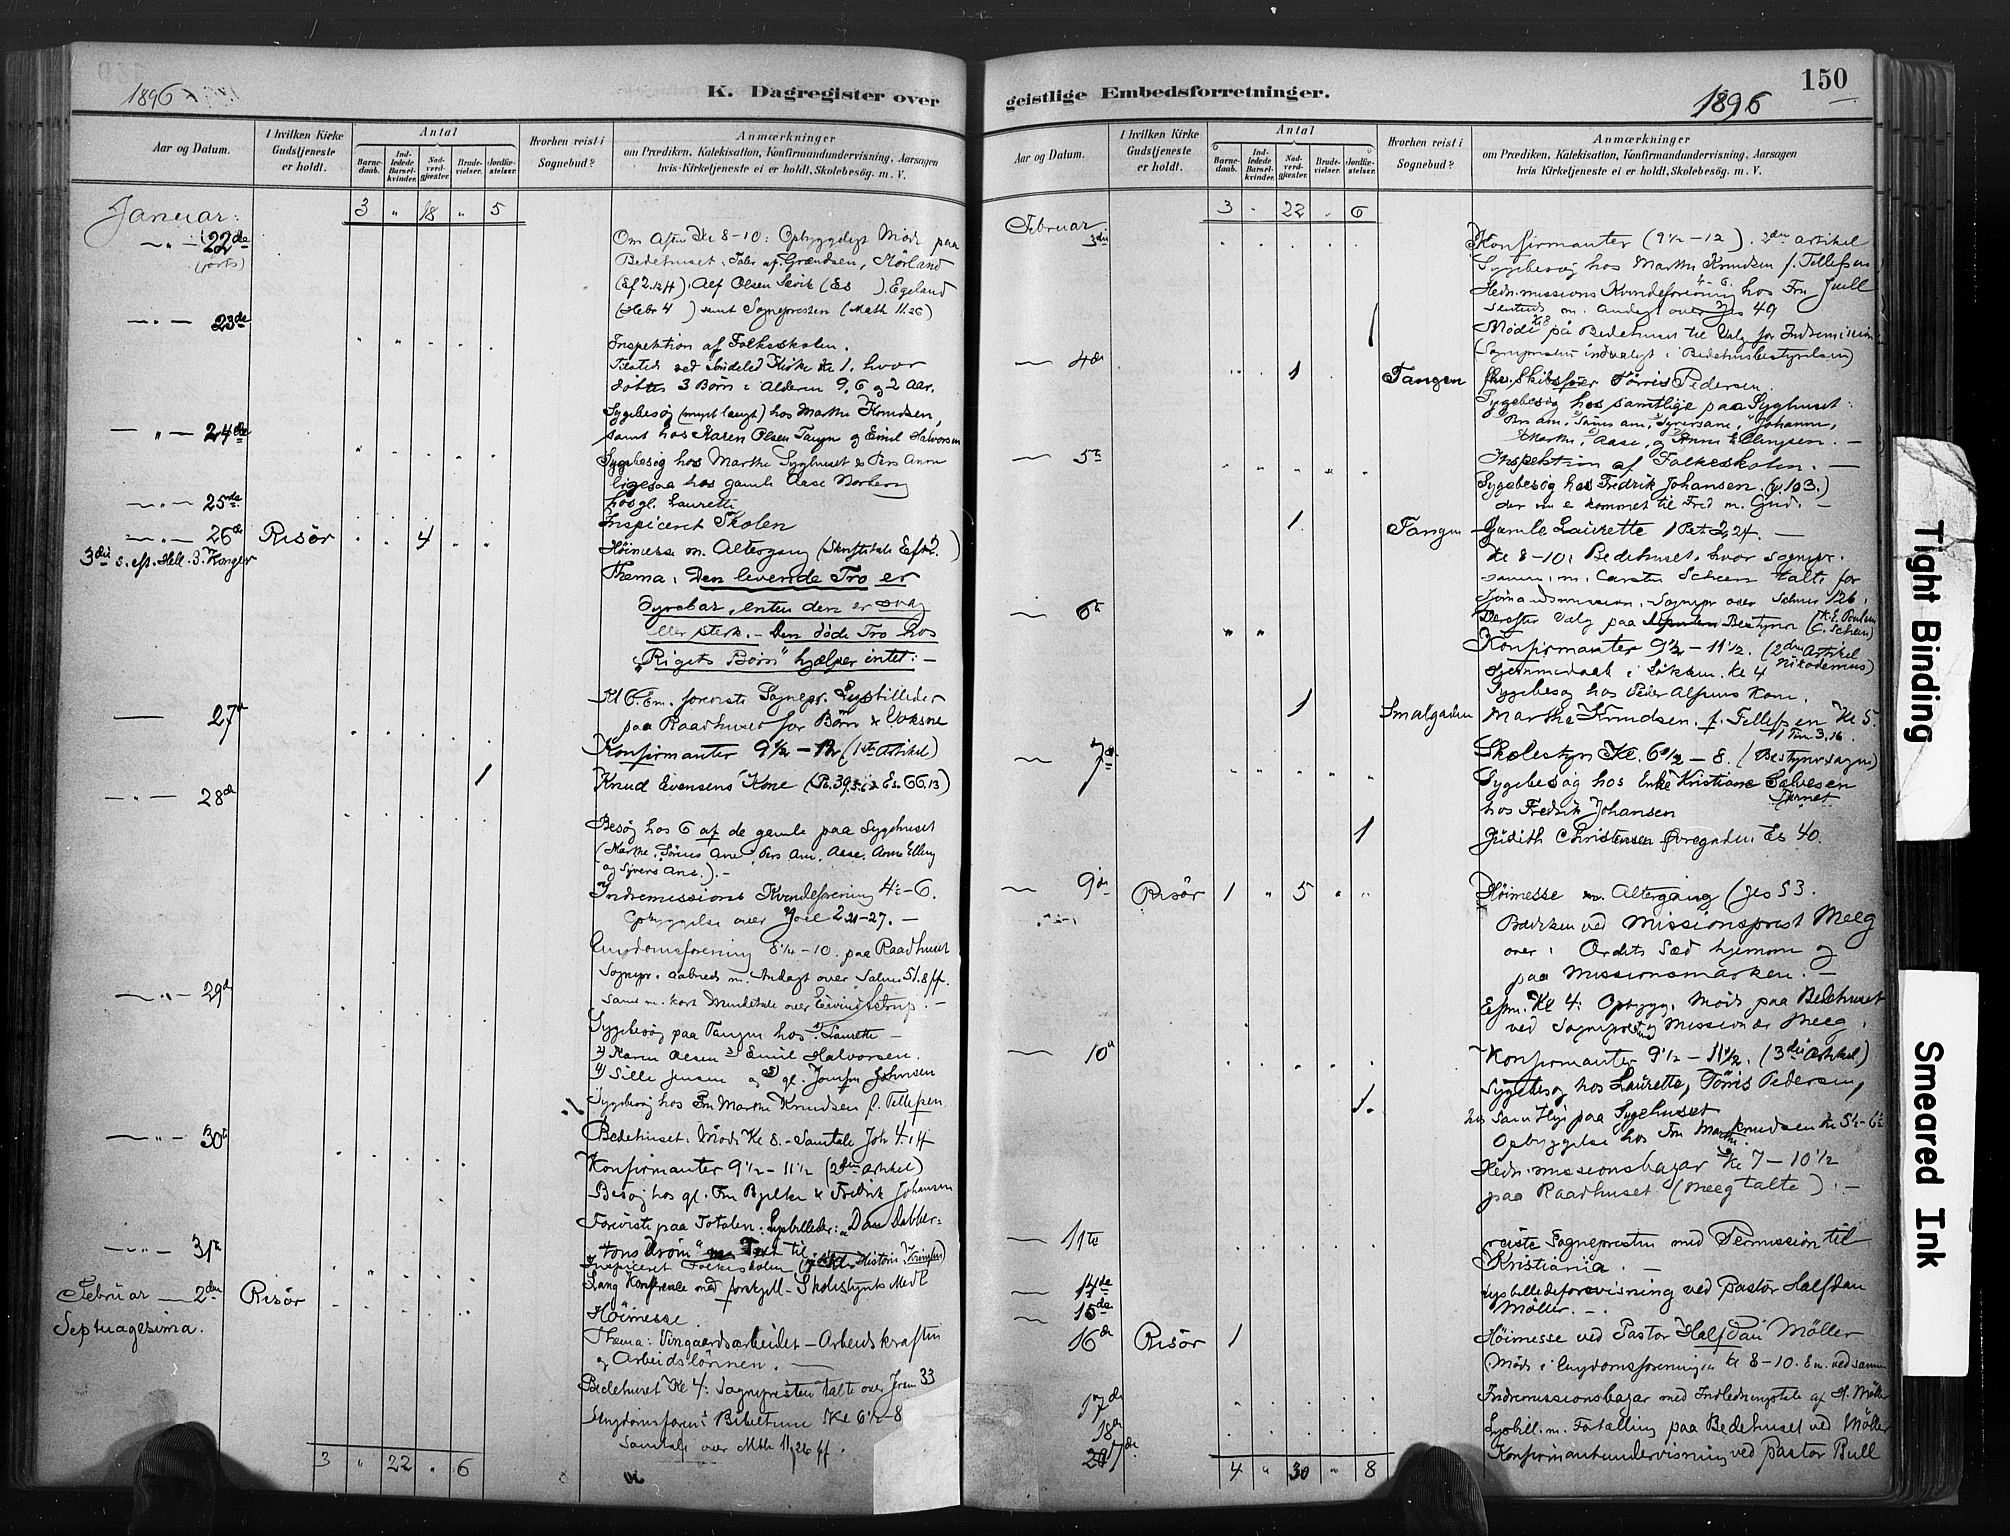 1896
K. Dagregister over
Aar og Datum.
I hvilken Kirke Gudstjeneste er holdt.
Antal
Barnedaab.
Indledede Barselkvinder.
Nadverdgjæster.
Brudevielser.
Jordfæstelser.
Hvorhen reist i Sognebud?
Anmærkninger
om Prædiken, Katekisation, Konfirmandundervisning, Aarsagen
hvis Kirketjeneste ei er holdt, Skolebesøg. m. V.
Januar:
3 " 18 " 5
22de
Om Aften Kl 8-10: Opbyggeligt Møde paa
Bedehuset: Taler af Grændsen, Mørland
(Ef 2.12ff). Alf Olsen Sævik (Es ). Egeland
(Hebr 4 ) samt Sognepresten (Math 11.28)
23de
Inspektion af Folkeskolen.
Tilsted ved
Kirke Kl 1. hvor
døbtes 3 Børn i Alderen 9, 6 og 2 Aar.
Sygebesøg
hos Marthe Knudsen,
24de
samt hos Karen Olsen Tangen og Emil Halvorsen
Sygebesøg hos Marthe Syghuset & Pers Anne
ligesaa hos gamle Aase Norberg
25de
hos gl. Laurette
Inspiceret Skolen
26de Risør 4
Høimesse m. Altergang (Skriftetale
3die s. eft. Hell. 3. Konger
Thema: Den levende Tro er
dyrebar, enten den er svag
eller sterk. - Den døde Tro hos
"Rigets Børn" hjælper intet: -
Kl 6 Em. foreviste Sognepr. Lysbilleder
27de
paa Raadhuset for Børn & Voksne
Konfirmanter 9½ - 12 (1ste Artikel)
1
Knud Evensens Kone (Ps. 39.5.6 & Es. 66.13)
28de
Besøg hos 6 af de gamle paa Sygehuset
(Marthe, Tønnes Ane, Pers Ane, Aase, Anne Elling
og Syvers Ane.). -
Indremissions Kvindeforening 4½-6.
Opbyggelse over Joel 2 21-27. -
Ungdomsforening 8½-10. paa Raadhuset
Sognepr. aabnede m. Andagt over Salme 51. 8 ff.
29de
samt m. kort Mindetale over Eivind Astrup. -
Sygebesøg paa Tangen hos 1) Laurette -
2) Karen Olsen 3) Emil Halvorsen.
4) Sille Jensen og 5) gl. Jomfru Johnsen
Sygebesøg hos Fru Marthe Knudsen f. Tellefsen
30te
Bedehuset: Møde Kl 8. - Samtale Joh 4.14
Konfirmanter 9½ - 11½ (2den Artikel)
Besøg hos gl. Fru Bjelke & Fredrik Johansen
Foreviste paa Totalen: Lysbilleder: "Dan Dabber-
31te
tons drøm"
Inspiceret Folkeskolen
Lang Konferense med forhenv. Skolestyrets Medl
Februar 2den Risør
Høimesse.
Septuagesima.
Thema: Vingaardsarbeidet - Arbeidskraften
og Arbeidslønnen. -
Bedehuset Kl 4: Sognepresten talte over Jerem 33
Ungdomsforen: Bibeltime Kl 6½-8
Samtale over Mtth 11,26 ff.
3 " 22 " 6
geistlige Embedsforretninger.
150
1896
Aar og Datum.
I hvilken Kirke Gudstjeneste er holdt.
Antal
Barnedaab.
Indledede Barselkvinder.
Nadverdgjæster.
Brudevielser.
Jordfæstelser.
Hvorhen reist i Sognebud?
Anmærkninger
om Prædiken, Katekisation, Konfirmandundervisning, Aarsagen
hvis Kirketjeneste ei er holdt, Skolebesøg. m. V.
3 - 22 - 6
Februar 3die
Konfirmanter (9½-12). 2den artikel
Sygebesøg hos Marthe Knudsen f. Tellefsen
Hedn. missions Kvindeforening hos Fru Juell
m. Andagt over Jes 49
1
Møde Kl 8 på Bedehuset til Valg for Indremission
(Sognepresten indvalgt i Bedehusbestyrelsen)
4de 1 Tangen
fhv. Skibsfører Tørris Pedersen.
Sygebesøg hos samtlige paa Syghuset:
Pers ane, Tønnes ane, Syversane, Johanne,
Marthe, Aase, og Anne Ellingsen. -
5te
Inspektion af Folkeskolen. -
Sygebesøg hos Fredrik Johansen. (ψ. 103.)
der nu er kommet til Fred m. Gud. -
1 Tangen
Gamle Laurette 1 Pet 2,24. -
Kl 8-10: Bedehuset, hvor sognepr.
samm. m. Carsten Scheen talte for
Sømandsmission. Sognepr over Salme 126.
6te
Derefter Valg paa
Bestyrer (K. E. Poulsen
C. Scheen)
Konfirmanter 9½-11½. (2den Artikel
Nikodemus)
Hjemmedaab i
Kl 4
Sygebesøg hos Peder Alfsens Kone.
1 Smalgaden
Marthe Knudsen. f. Tellefsen Kl. 5.
1 Tim. 3.16.
7de
Skolestyre Kl. 6½-8. (Bestyrersagen)
Sygebesøg hos Enke Kristiane Salvesen
Tjernet
hos Fredrik Johansen
1
Judith Christensen Øvregaden Es 40.
9de Risør 1 " 5 " "
Høimesse m. Altergang (Jes 53.
Prædiken ved Missionsprest Meeg
over: Ordets Sæd hjemme og
paa Missionsmarken. -
Efm. Kl 4: Opbygg. Møde paa Bedehuset
ved Sognepresten og Missionær Meeg.
10de
Konfirmanter 9½-11½. (3die artikel)
Sygebesøg hos Laurette, Tørris Pedersen,
1.
hos samtlige paa Sygehuset
Opbyggelse hos Fru Marthe Knudsen Kl 5½-6½
Hedn. missionsbazar Kl 7-10½
paa Raadhuset (Meeg talte). -
11te
reiste Sognepresten med Permission til
Kristiania. -
14de
Lysbilledeforevisning ved Pastor Halfdan
15de
Møller. -
16de Risør 1
Høimesse ved Pastor Halfdan Møller
Møde i Ungdomsforeningen Kl 8-10. Em. ved samme
17de
Indremissionsbazar med Indledningstale af H. Møller
18de
Lysbill. m. Fortælling paa Bedehuset ved Møller
Konfirmantundervisning ved Pastor Bull
4 " 30 " 8
Tight Binding
Smeared Ink